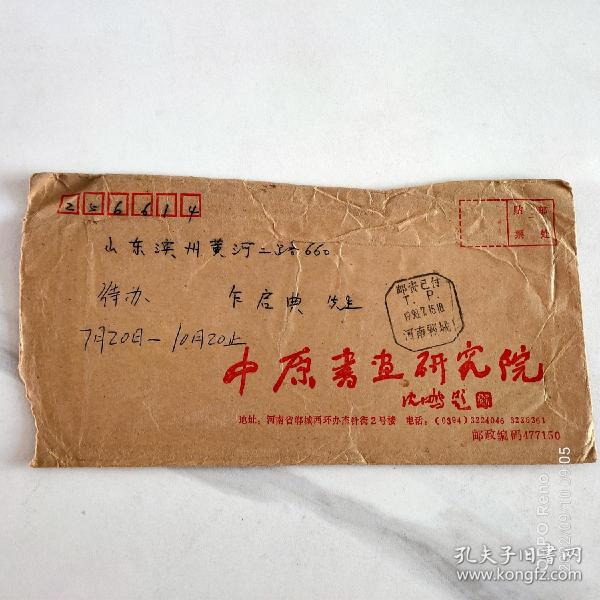 256614
贴邮
票处
山东滨州黄河二路660
待办 乍启典 先生
7月20日—10月20止
邮资已付
T. P.
河南郸城
中原书画研究院
沈鹏题
地址：河南省郸城西环办查针街2号楼 电话：（0394）3224046 3226361
邮政编码477150
OPPO Reno
孔夫子旧书网
www.kongfz.com